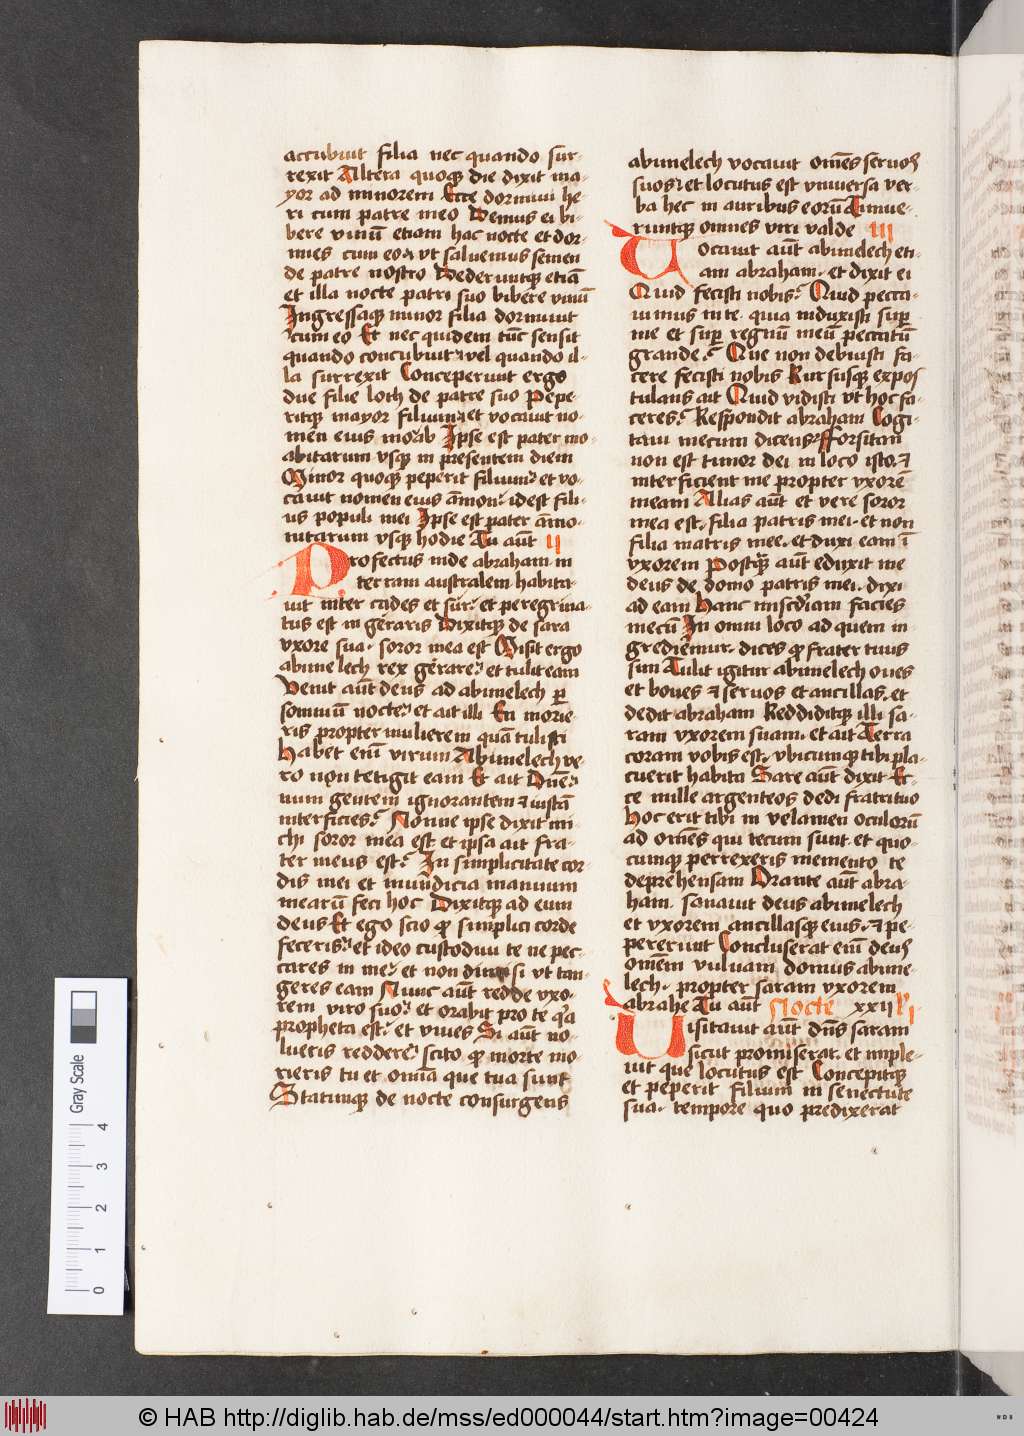 accubuit filia nec quando sur-
rexit Altera quoqꝫ die dixit ma-
yor ad minorem Ecce dormiui he-
ri cum patre meo Demus ei bi-
bere vinū etiam hac nocte et dor-
mies cum eo vt saluemus semen
de patre nostro Dederuntqꝫ etiā
et illa nocte patri suo bibere vinū
Ingressaqꝫ minor filia dormiuit
cum eo Et nec quidem tūc sensit
quando concubuit vel quando il-
la surrexit Conceperunt ergo
due filie loth de patre suo Pepe-
ritqꝫ mayor filium et vocauit no-
men eius moab Ipse est pater mo-
abitarum vsqꝫ in presentem diem
Minor quoqꝫ peperit filium et vo-
cauit nomen eius āmon idest fili-
us populi mei Ipse est pater āmo-
nitarum vsqꝫ hodie Tu aūt II
Profectus inde abraham in
terram australem habita-
uit inter cades et sur et peregrina-
tus est in geraris Dixitqꝫ de sara
vxore sua soror mea est Misit ergo
abimelech rex gerare et tulit eam
Venit aūt deus ad abimelech per
somniū nocte et ait illi En morie-
ris propter mulierem quā tulisti
Habet enī virum Abimelech ve-
ro non tetigit eam Et ait Dn̄e
num gentem ignorantem et iustā
interficies? Nonne ipse dixit mi-
chi soror mea est et ipsa ait fra-
ter meus est? In simplicitate cor-
dis mei et mundicia manuum
mearū feci hoc Dixitqꝫ ad eum
deus Et ego scio ꝙ simplici corde
feceris et ideo custodiui te ne pec-
cares in me et non dimisi vt tan-
geres eam Nunc aūt redde vxo-
rem viro suo et orabit pro te qꝛ
propheta est et viues Si aūt no-
lueris reddere scito ꝙ morte mo-
rieris tu et omīa que tua sunt
Statimqꝫ de nocte consurgens
abimelech vocauit omēs seruos
suos et locutus est vniuersa ver-
ba hec in auribus eorū Timue-
runtqꝫ omnes viri valde III
Vocauit aūt abimelech eti-
am abraham et dixit ei
Quid fecisti nobis? Quid pecca-
uimus in te quia induxisti super
me et super regnū meū peccatū
grande? Que non debuisti fa-
cere fecisti nobis Rursusqꝫ expos
tulans ait Quid vidisti vt hoc fa-
ceres? Respondit abraham Cogi-
taui mecum dicens fforsitan
non est timor dei in loco isto et
interficient me propter vxorē
meam Alias aūt et vere soror
mea est filia patris mei et non
filia matris mee et duxi eam ī
vxorem Postqꝫ aūt eduxit me
deus de domo patris mei dixi
ad eam Hanc miscdīam facies
mecū In omni loco ad quem in-
grediemur dices ꝙ frater tuus
sim Tulit igitur abimelech oues
et boues et seruos et ancillas et
dedit abraham Reddiditqꝫ illi sa-
ram vxorem suam et ait Terra
coram vobis est vbicumqꝫ tibi pla-
cuerit habita Sare aūt dixit Ec-
ce mille argenteos dedi fratri tuo
Hoc erit tibi in velamen oculorū
ad omēs qui tecum sunt et quo-
cumqꝫ perrexeris memento te
deprehensam Orante aūt abra-
ham sanauit deus abimelech
et vxorem ancillasqꝫ eius et pe-
pererunt Concluserat enī deus
omēm vuluam domus abime-
lech propter saram vxorem
abrahe Tu aūt Nocte xxii I
Uisitauit aūt dn̄s saram
sicut promiserat et imple-
uit que locutus est Concepitqꝫ
et peperit filium in senectute
sua tempore quo predixerat
Gray Scale
0 1 2 3 4
© HAB http://diglib.hab.de/mss/ed000044/start.htm?image=00424